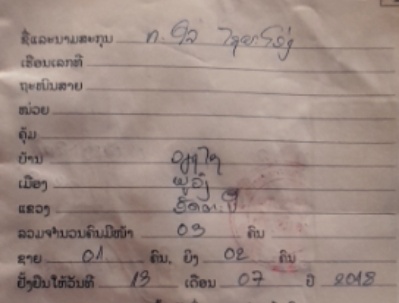 ຊື່ແລະນາມສະກຸນ ທ. ໃຈ
ເຮືອນເລກທີ
ຖະໜົນສາຍ
ໜ່ວຍ
ຄຸ້ມ
ບ້ານ
ເມືອງ ພູວົງ
ແຂວງ ອັດຕະປື
ລວມຈຳນວນຄົນມີໜ້າ 03 ຄົນ
ຊາຍ 01 ຄົນ, ຍິງ 02 ຄົນ
ຢັ້ງຢືນໃຫ້ວັນທີ 13 ເດືອນ 07 ປີ 2018